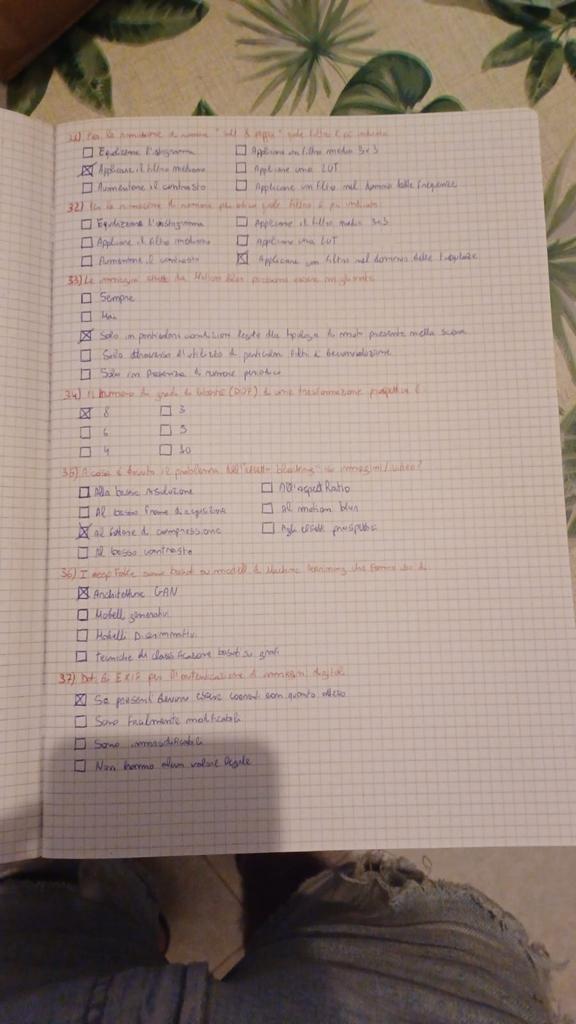 31) Per la rimozione di rumore "salt & pepper" quale filtro è più indicato
Equalizzare l'istogramma
Applicare un filtro media 3x3
Applicare il filtro mediano
Applicare una LUT
Aumentare il contrasto
Applicare un filtro nel dominio delle frequenze
32) Per la rimozione di rumore quale filtro è più indicato
Equalizzare l'istogramma
Applicare il filtro media 3x3
Applicare il filtro mediano
Applicare una LUT
Aumentare il contrasto
Applicare un filtro nel dominio delle frequenze
33) Le immagini da Motion Blur possono essere migliorate
Sempre
Mai
Solo in particolari condizioni legate alla tipologia di moto presente nella scena
Solo attraverso l'utilizzo di particolari filtri di deconvoluzione
Solo in presenza di rumore periodico
34) Il numero di gradi di libertà (DOF) di una trasformazione prospettica è
8
3
6
5
4
10
35) A cosa è dovuto il problema dell'effetto blocking su immagini/video?
Alla bassa risoluzione
All'aspect Ratio
Al basso frame di acquisizione
Al motion blur
Al fattore di compressione
Agli effetti prospettici
Al basso contrasto
36) I deep fake sono basati su modelli di Machine Learning che fanno uso di
Architetture GAN
Modelli generativi
Modelli Discriminativi
Tecniche di classificazione basate su grafi
37) Dati EXIF per l'autenticazione di immagini digitali
Se presenti devono essere coerenti con quanto atteso
Sono facilmente modificabili
Sono immodificabili
Non hanno alcun valore legale